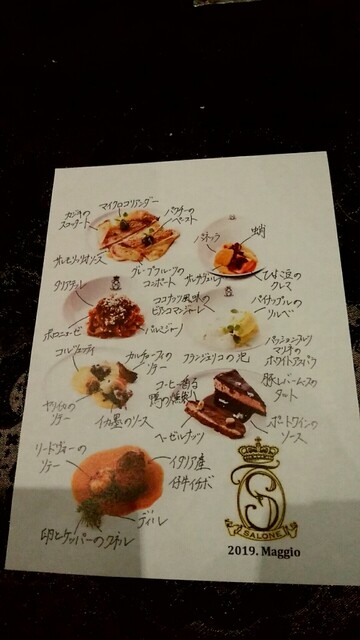 マイクロコリアンダー
カジキの
スコッタート
パクチーの
ペースト
パネッレ
蛸
サルモリッリオソース
グレープフルーツの
コンポート
サルサヴェルデ
ひよこ豆の
クレマ
タリアテッレ
ココナッツ風味の
ビアンコマンジャーレ
パイナップルの
ソルベ
ボロニェーゼ
パルミジャーノ
カルチョーフィの
ソテー
フランジェリコの泡
コーヒー香る
鴨の燻製
豚レバームースの
タルト
ヤリイカの
ソテー
イカ墨のソース
ヘーゼルナッツ
ポートワインの
ソース
リードヴォーの
ソテー
イタリア産
仔牛イチボ
ディル
卵とケッパーの
SALONE
2019. Maggio